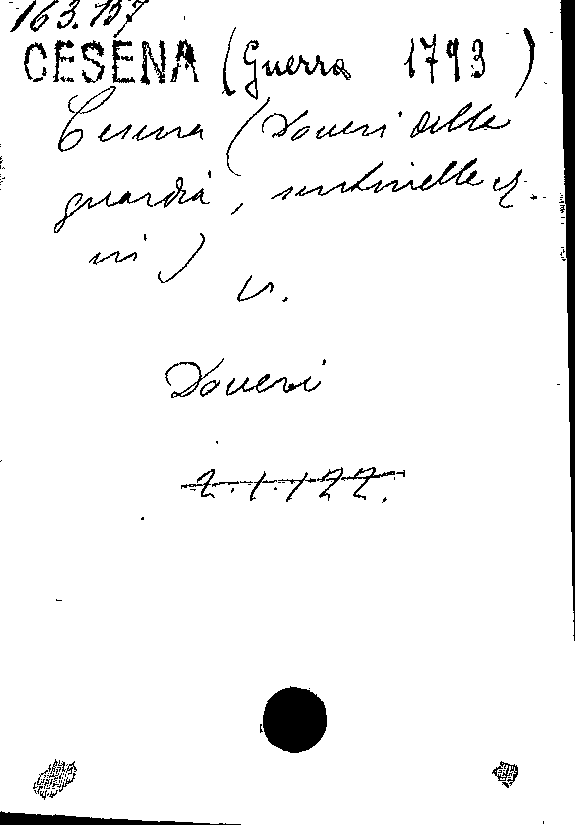 163.107
CESENA (Guerra 1793)
Cesena (Doveri della
guardia, sentinelle
v.
Doveri
2.1.122.